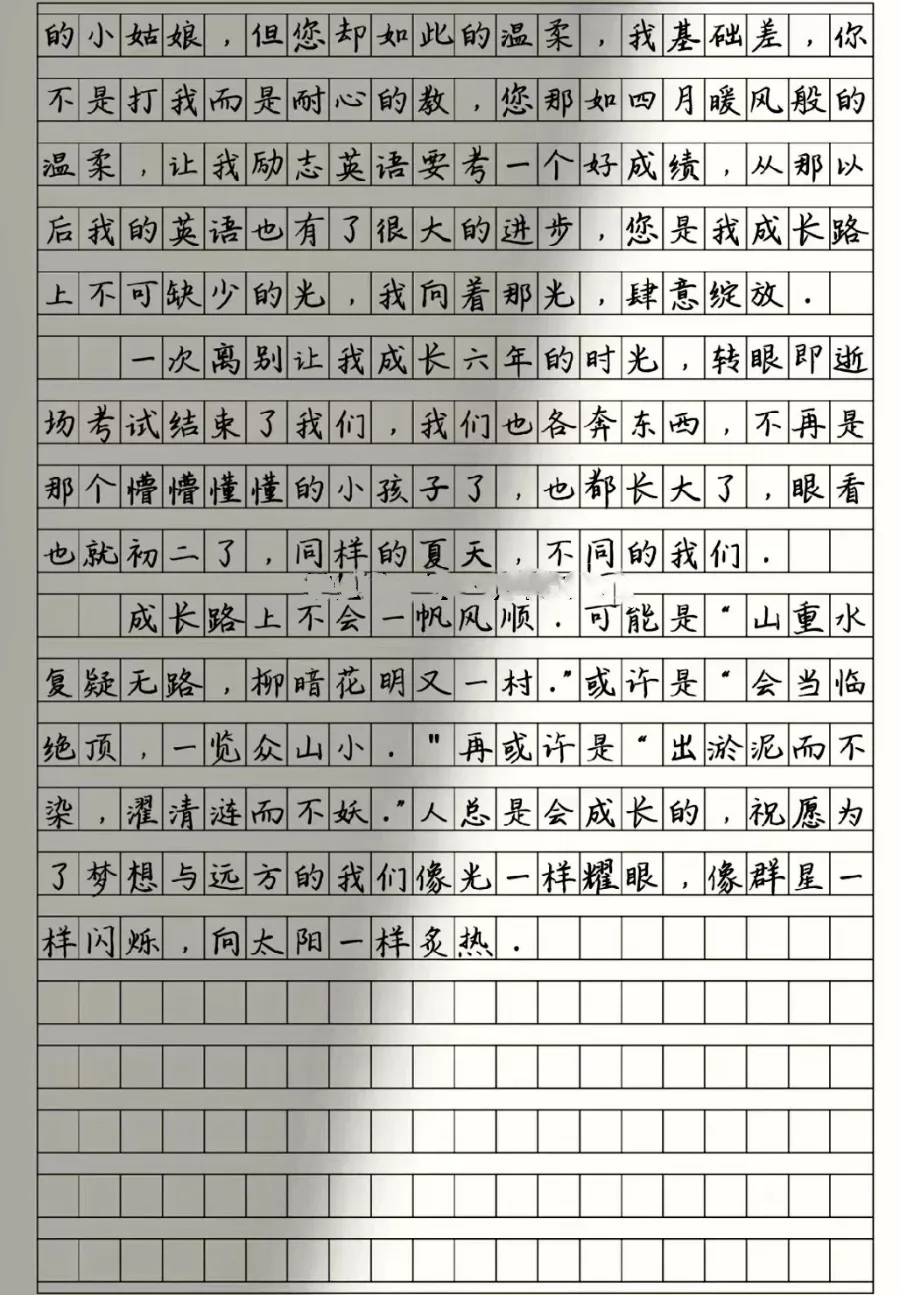 的小姑娘，但您却如此的温柔，我基础差，你
不是打我而是耐心的教，您那如四月暖风般的
温柔，让我励志英语要考一个好成绩，从那以
后我的英语也有了很大的进步，您是我成长路
上不可缺少的光，我向着那光，肆意绽放.
一次离别让我成长六年的时光，转眼即逝
场考试结束了我们，我们也各奔东西，不再是
那个懵懵懂懂的小孩子了，也都长大了，眼看
也就初二了，同样的夏天，不同的我们.
成长路上不会一帆风顺.可能是“山重水
复疑无路，柳暗花明又一村.”或许是“会当临
绝顶，一览众山小."再或许是“出淤泥而不
染，濯清涟而不妖.”人总是会成长的，祝愿为
了梦想与远方的我们像光一样耀眼，像群星一
样闪烁，向太阳一样炙热.